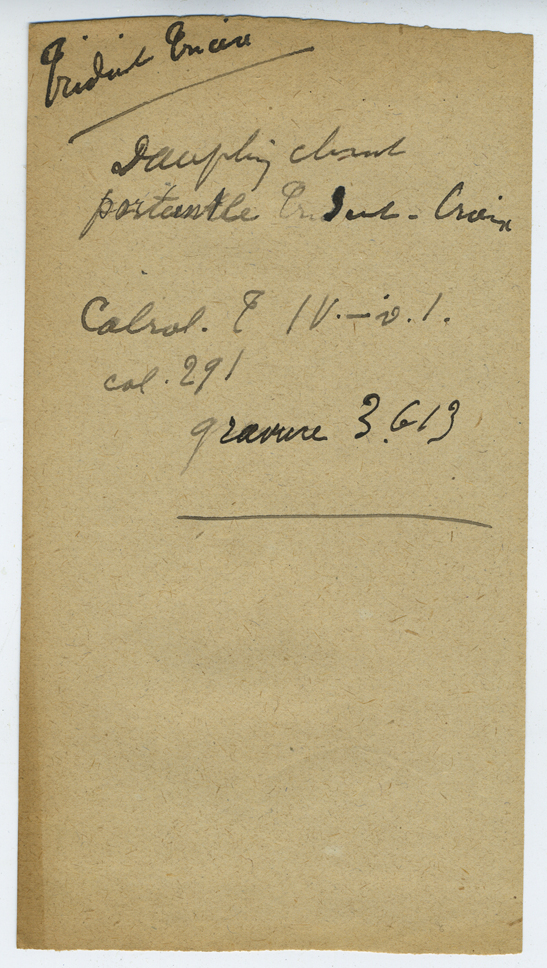 Trident
Dauphin
portant le Trident - Croix
Cabrol. T IV. - v. 1.
col. 291
gravure 3.613